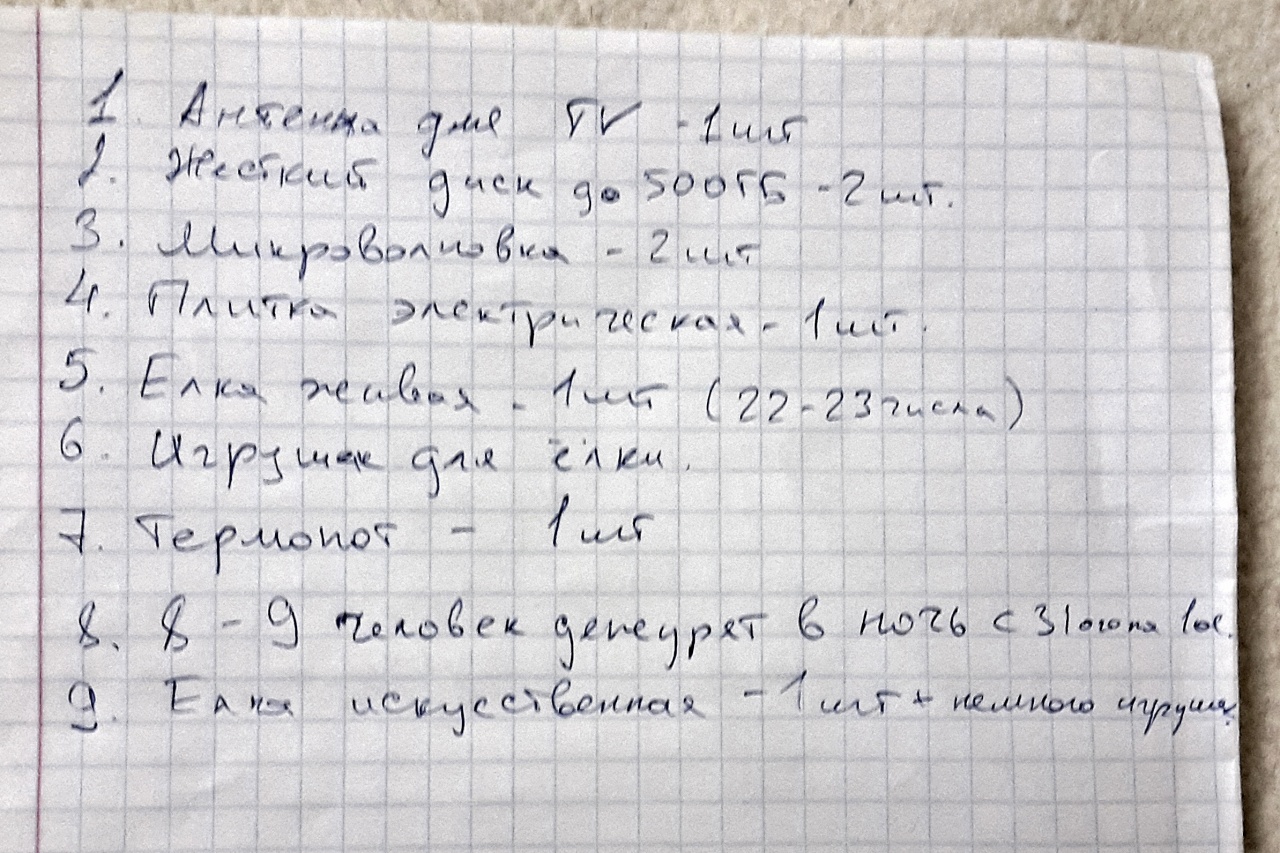 1. Антенна для TV - 1 шт
2. Жесткий диск до 500ГБ - 2 шт.
3. Микроволновка - 2 шт
4. Плитка электрическая - 1 шт.
5. Елка живая - 1 шт (22-23 числа)
6. Игрушек для ёлки.
7. Термопот - 1 шт
8. 8 - 9 человек дежурят в ночь с 31ого на 1ое.
9. Елка искуственная - 1 шт + немного игрушек